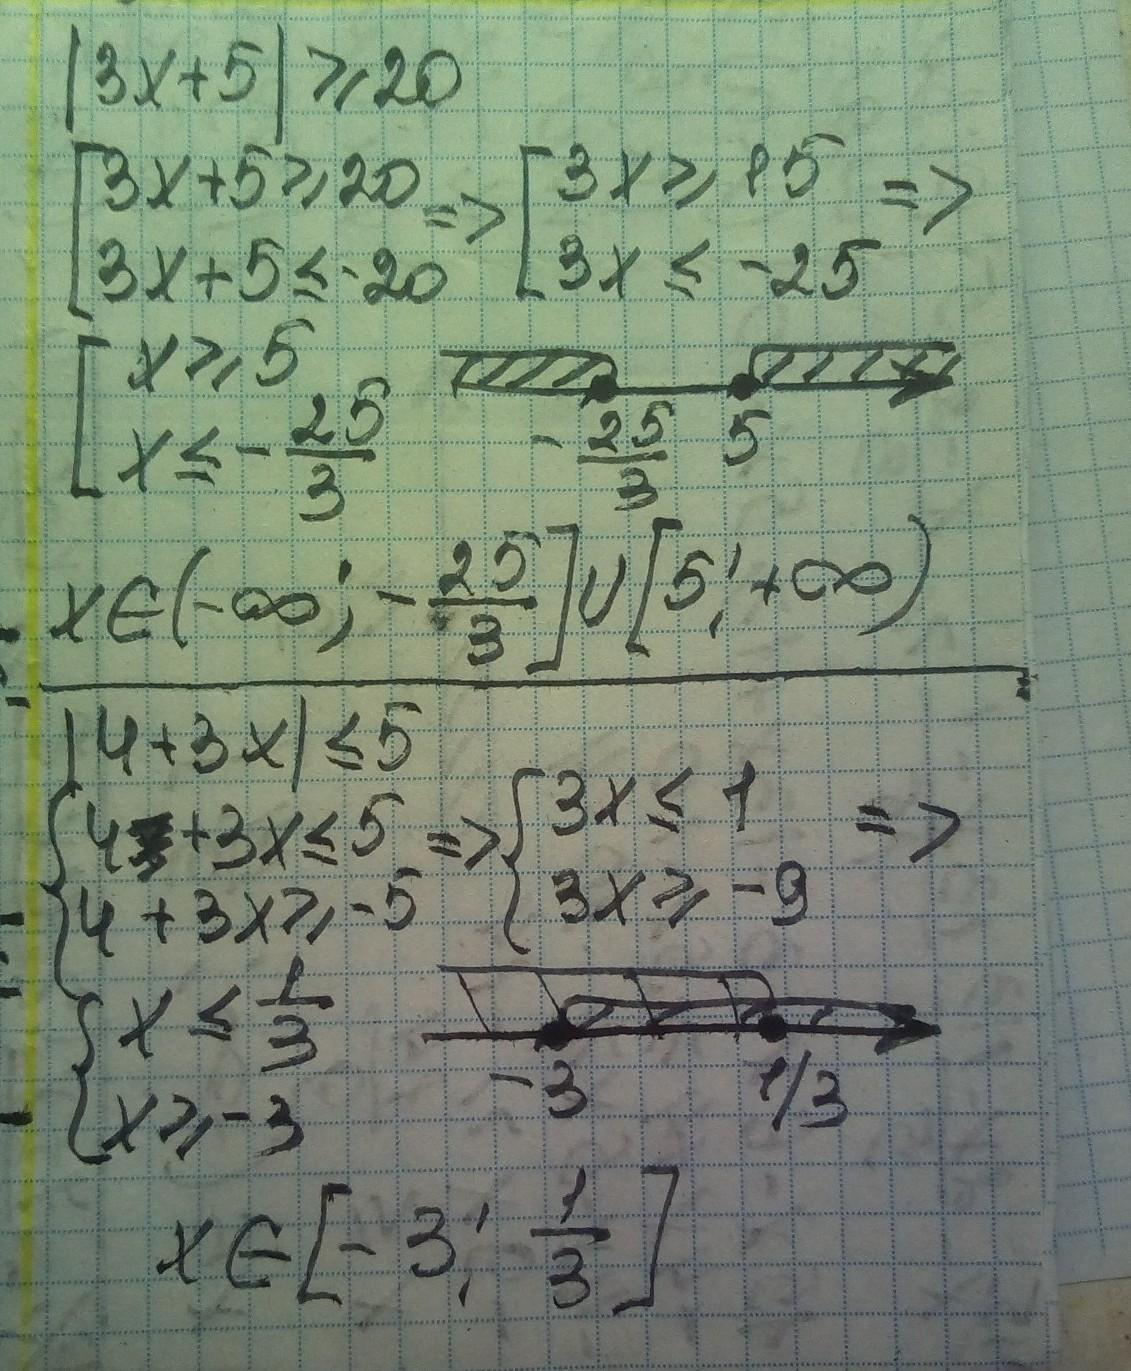 |3x+5| ⩾ 20
[3x+5 ⩾ 20 => [3x ⩾ 15 =>
3x+5 ≤ -20 3x ≤ -25
[x ⩾ 5
x ≤ -25/3 -25/3 5
x∈(-∞; -25/3]∪[5; +∞)
|4+3x| ≤ 5
{4+3x ≤ 5 => {3x ≤ 1 =>
4+3x ⩾ -5 3x ⩾ -9
{x ≤ 1/3
x ⩾ -3 -3 1/3
x∈[-3; 1/3]